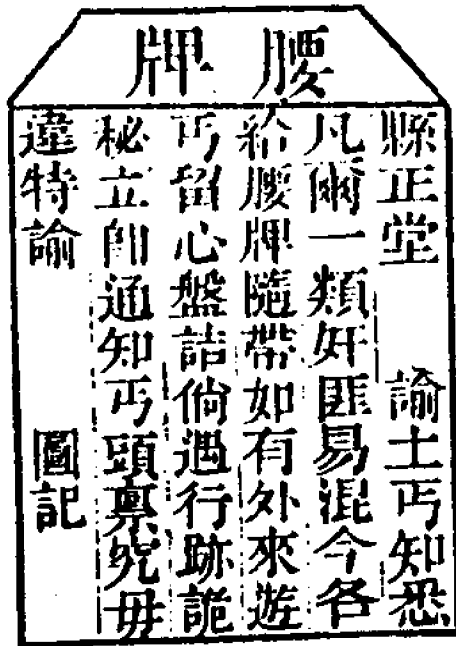 腰牌
縣正堂　　諭土丐知悉
凡爾一類奸匪易混今各
給腰牌隨帶如有外來遊
丐留心盤詰倘遇行跡詭
秘立即通知丐頭稟究毋
違特諭　　　圖記